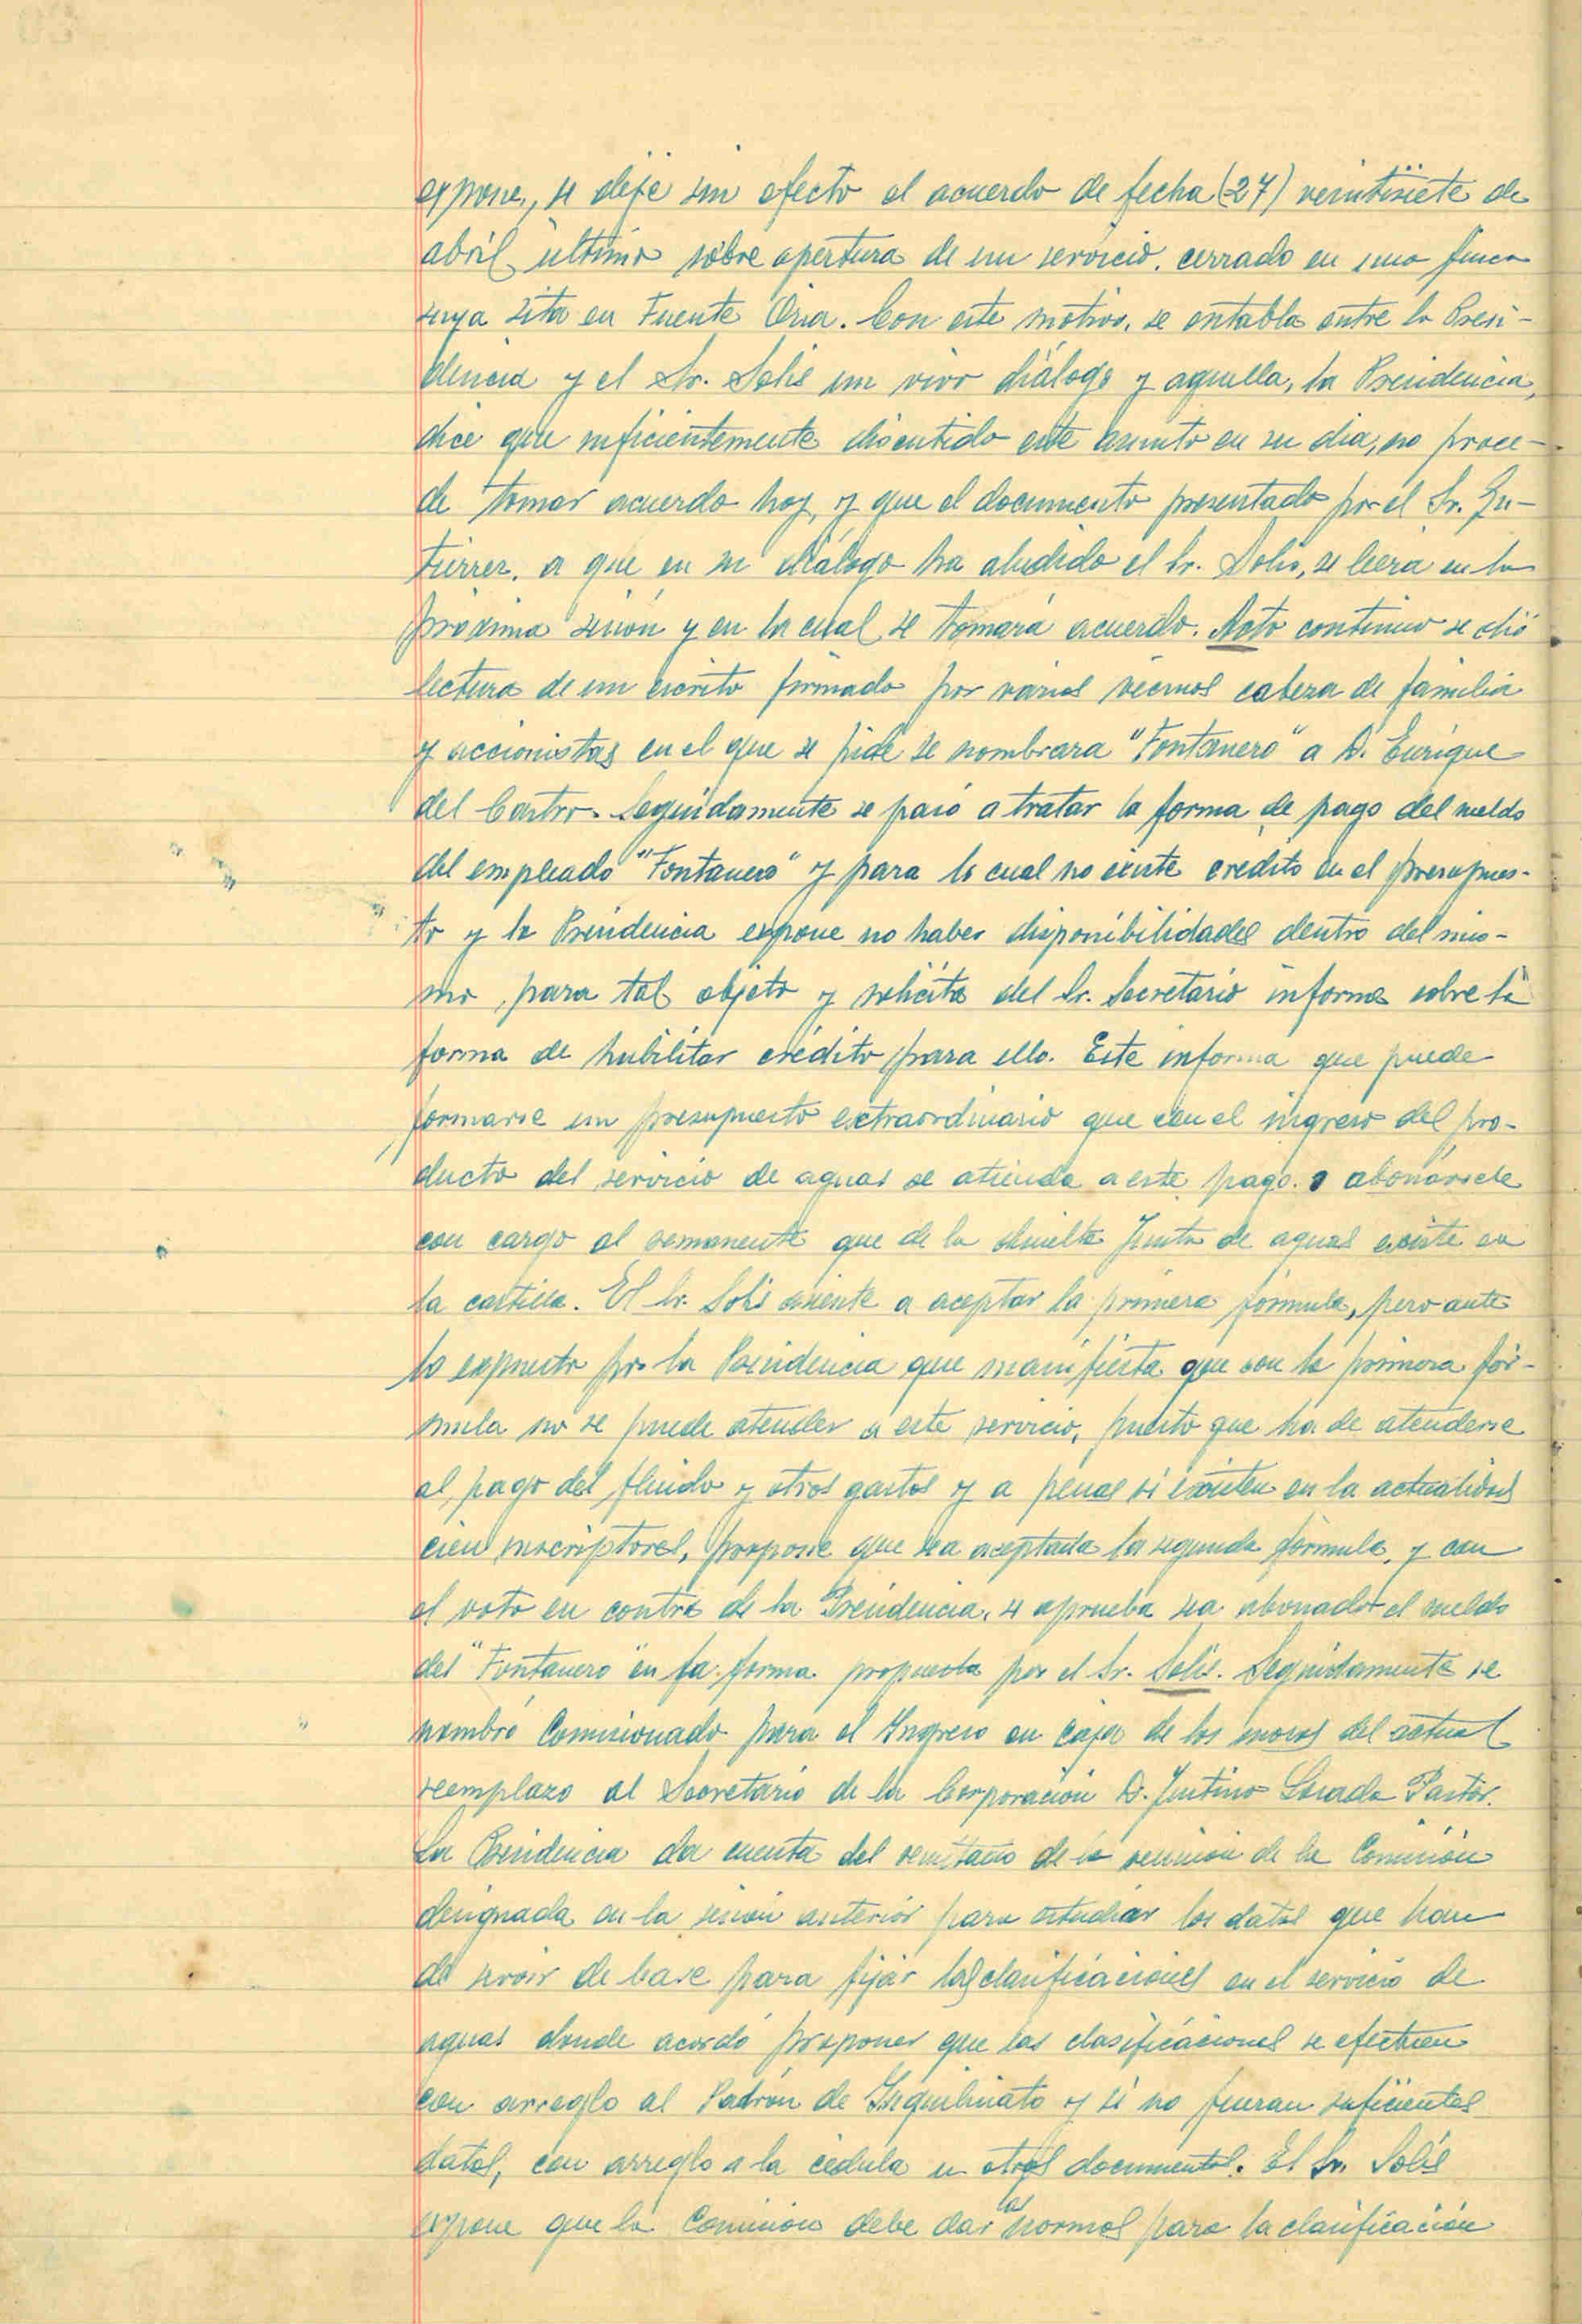 expone, se deje sin efecto el acuerdo de fecha (27) veintisiete de
abril último sobre apertura de un servicio, cerrado en una finca
suya sita en Fuente Oria. Con este motivo, se entabla entre la Presi-
dencia y el Sr. Solis un vivo diálogo y aquella, la Presidencia,
dice que suficientemente discutido este asunto en su dia, no proce-
de tomar acuerdo hoy, y que el documento presentado por el Sr. Gu-
tiérrez, a que en su diálogo ha aludido el Sr. Solis, se leera en la
próxima sesión y en la cual se tomará acuerdo. Acto continuo se dió
lectura de un escrito firmado por varios vecinos cabeza de familia
y accionistas en el que se pide se nombrara "Fontanero" a D. Enrique
del Castro. Seguidamente se pasó a tratar la forma de pago del sueldo
del empleado "Fontanero" y para lo cual no existe credito en el presupues-
to y la Presidencia expone no haber disponibilidades dentro del mis-
mo, para tal objeto y solicita del Sr. Secretario informe sobre la
forma de habilitar crédito para ello. Este informa que puede
formarse un presupuesto extraordinario que con el ingreso del pro-
ducto del servicio de aguas se atienda a este pago o abonársele
con cargo al remanente que de la disuelta Junta de aguas existe en
la cartilla. El Sr. Solis asiente a aceptar la primera fórmula, pero ante
lo expuesto por la Presidencia que manifiesta que con la primera fór-
mula no se puede atender a este servicio, puesto que ha de atenderse
al pago del fluido y otros gastos y a penas si existen en la actualidad
cien suscriptores, propone que sea aceptada la segunda fórmula, y con
el voto en contra de la Presidencia, se aprueba sea abonado el sueldo
del "Fontanero" en la forma propuesta por el Sr. Solis. Seguidamente se
nombró Comisionado para el Ingreso en Caja de los mozos del actual
reemplazo al Secretario de la Corporación D. Justino Losada Pastor.
La Presidencia da cuenta del resultado de la reunion de la Comisión
designada en la sesión anterior para estudiar los datos que han
de servir de base para fijar las clasificaciones en el servicio de
aguas donde acordó proponer que las clasificaciones se efectuen
con arreglo al Padrón de Inquilinato y si no fueran suficientes
datos, con arreglo a la cédula u otros documentos. El Sr. Solis
expone que la Comisión debe dar las normas para la clasificación